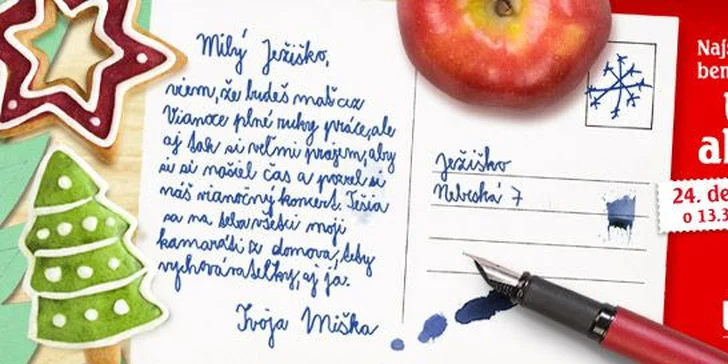 Milý Ježiško,
viem, že budeš mať cez
Vianoce plné ruky práce, ale
aj tak si veľmi prajem, aby
si si našiel čas a pozrel si
náš vianočný koncert. Tešia
sa na teba všetci moji
kamaráti z domova, teby
vychovávateľky, aj ja.
Tvoja Miška
Ježiško
Nebeská 7
24. de
o 13.3